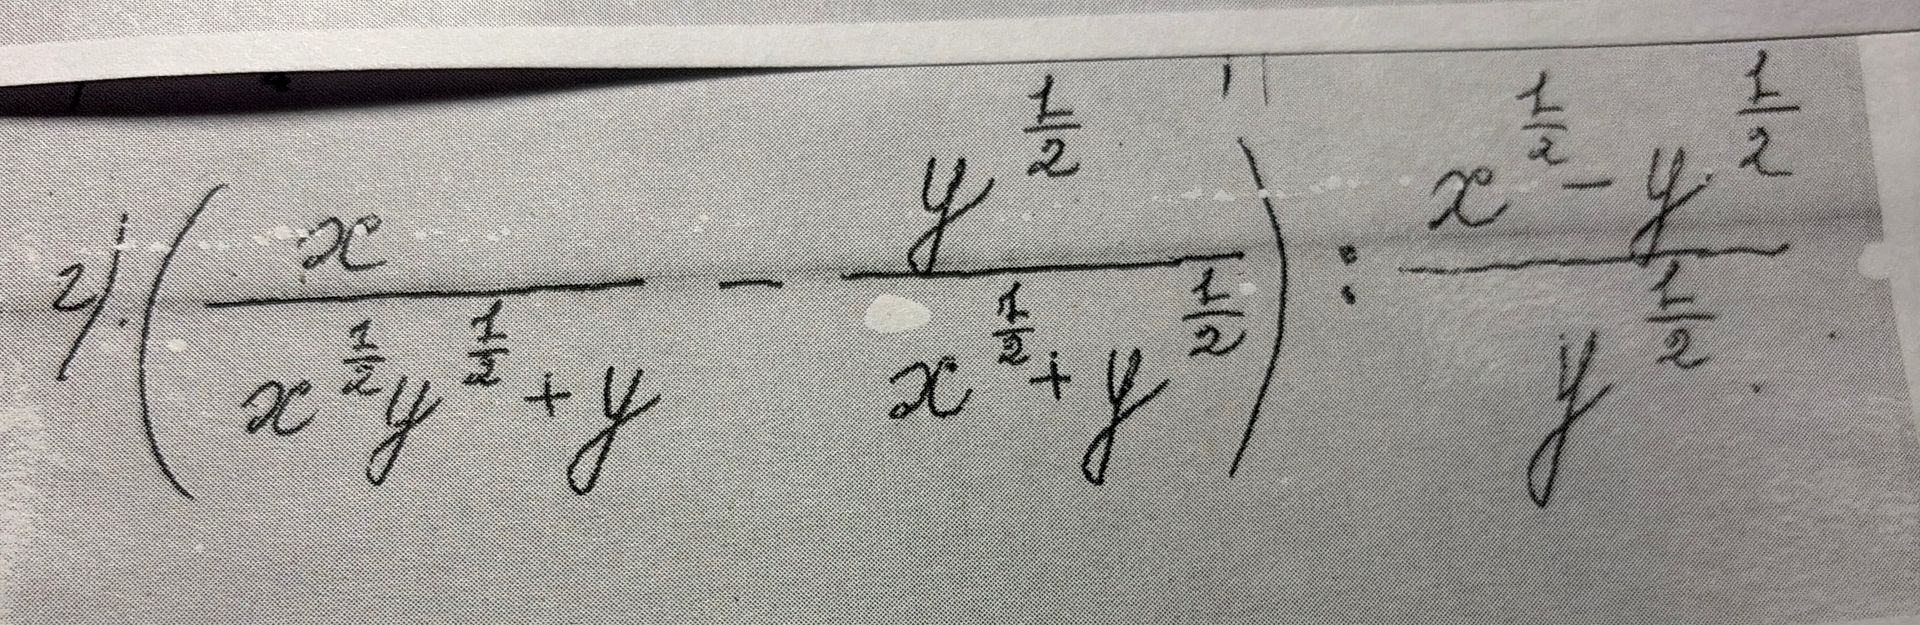 2). (x/(x^(1/2)y^(1/2) + y) - y^(1/2)/(x^(1/2) + y^(1/2))) : (x^(1/2) - y^(1/2))/y^(1/2).